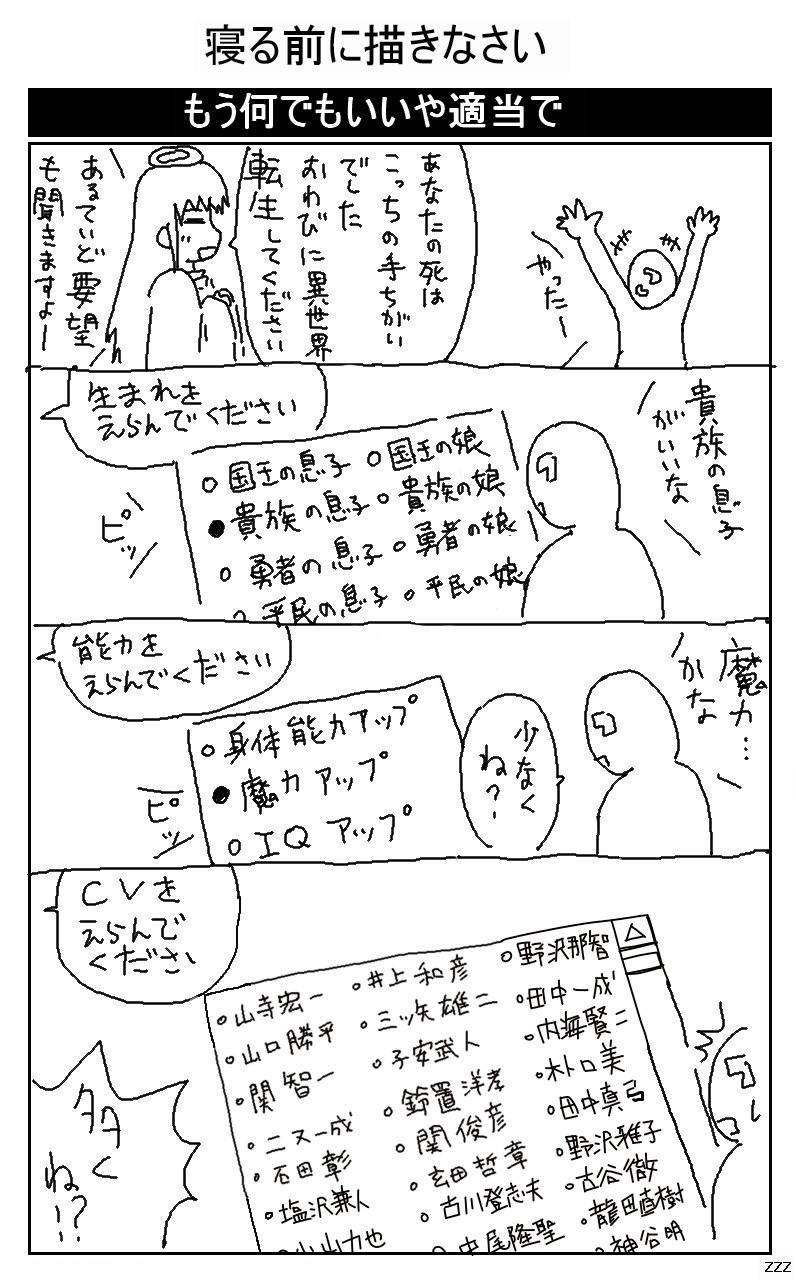 寝る前に描きなさい
もう何でもいいや適当で
やったー
あなたの死は
こっちの手ちがい
でした
おわびに異世界
転生してください
あるていど要望
も聞きますよー
貴族の息子
がいいな
生まれを
えらんでください
○国王の息子 ○国王の娘
●貴族の息子 ○貴族の娘
○勇者の息子 ○勇者の娘
○平民の息子 ○平民の娘
ピッ
魔力…
かな
少なく
ね?
能力を
えらんでください
○身体能力アップ
●魔力アップ
○IQアップ
ピッ
CVを
えらんで
ください
○山寺宏一 ○井上和彦 ○野沢那智
○山口勝平 ○三ッ矢雄二 ○田中一成
○関智一 ○子安武人 ○内海賢二
○二又一成 ○鈴置洋孝 ○木卜口美
○石田彰 ○関俊彦 ○田中真弓
○塩沢兼人 ○玄田哲章 ○野沢雅子
○小山力也 ○古川登志夫 ○古谷徹
○中尾隆聖 ○龍田直樹
○神谷明
△
多く
ね!?
zzz